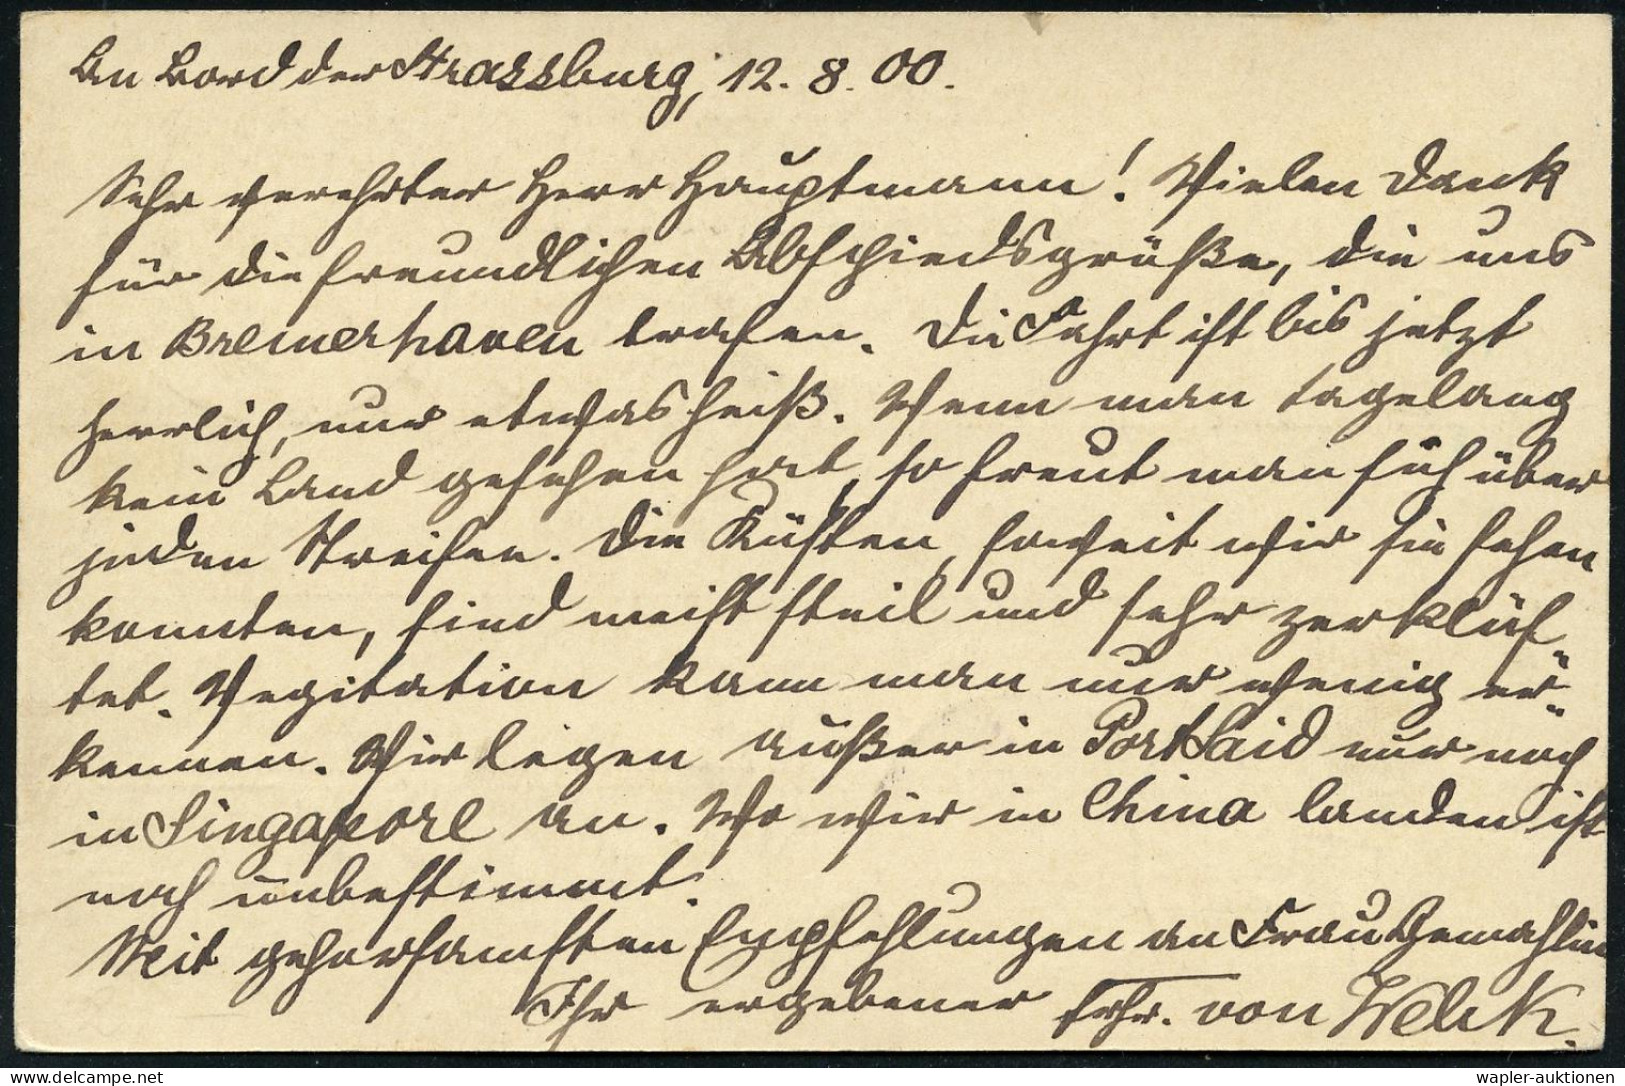 An Bord der Strassburg, 12. 8. 00.
Sehr verehrter Herr Hauptmann! Vielen Dank
für die freundlichen Abschiedsgrüße, die uns
in Bremerhaven trafen. Die Fahrt ist bis jetzt
herrlich, nur etwas heiß. Wenn man tagelang
kein Land gesehen hat, so freut man sich über
jeden Streifen. Die Küsten, soweit wir sie sehen
konnten, sind meist steil und sehr zerklüf-
tet. Vegitation kann man nur wenig er-
kennen. Wir legen außer in Port Said nur noch
in Singapore an. Wo wir in China landen ist
noch unbestimmt.
Mit gehorsamsten Empfehlungen an Frau Gemahlin
Ihr ergebener Frhr. von
delcampe.net
wapler-auktionen